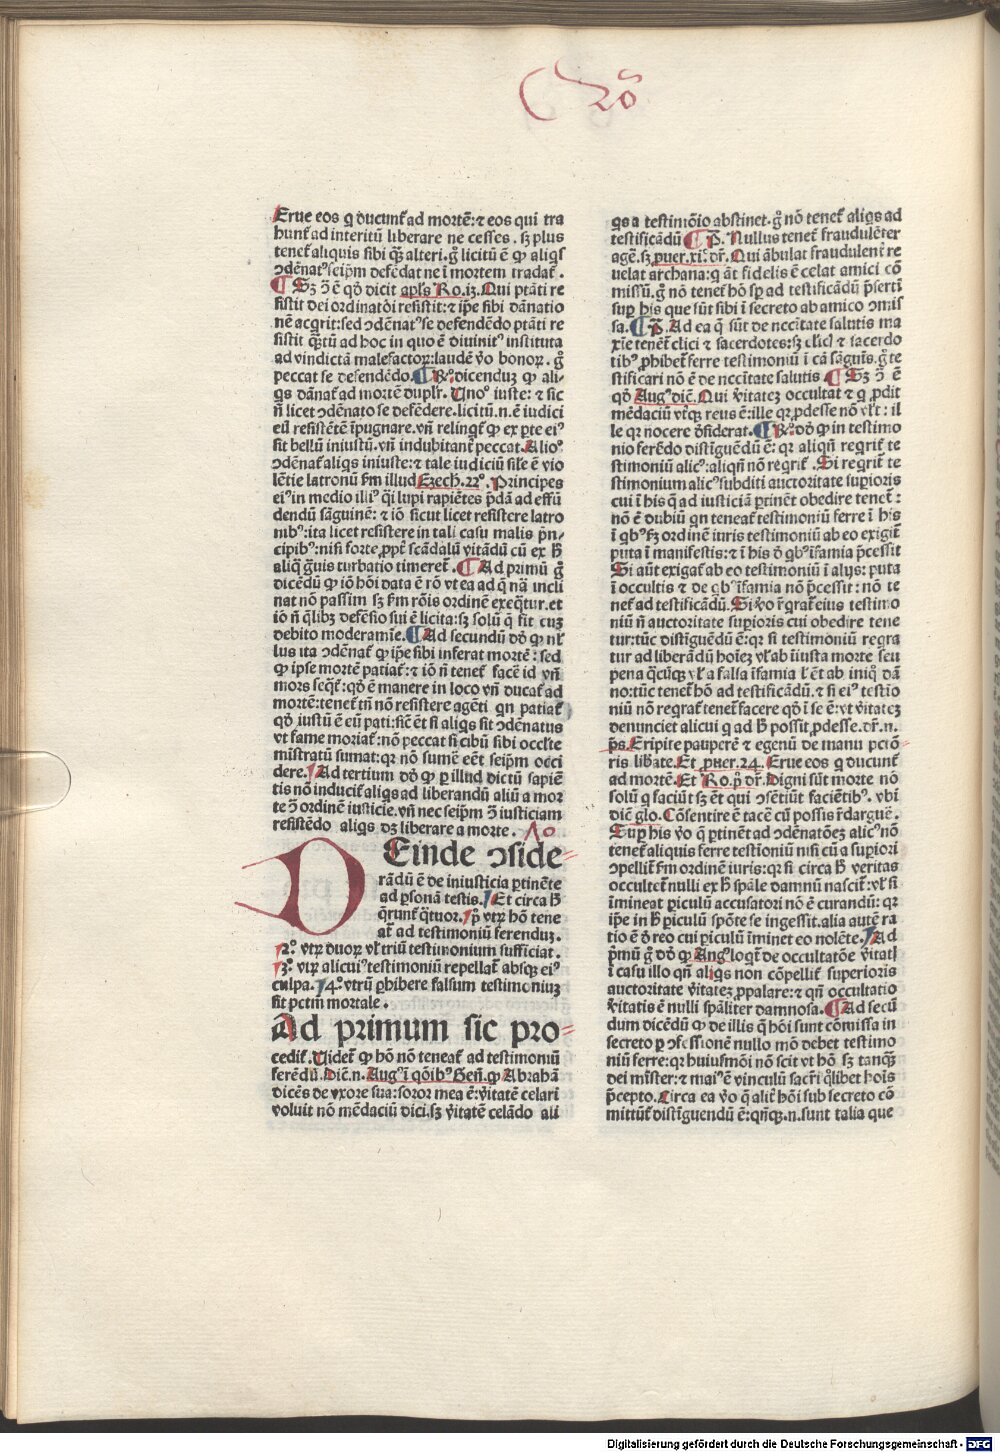 2o
Erue eos q̄ ducunt᷑ ad mortē: ⁊ eos qui tra
hunt᷑ ad interitū liberare ne cesses. sꝫ plus
tenet᷑ aliquis sibi qȝ alteri. g̊ licitū ē ꝙ aliqͥs
ꝯdēnatꝰ seip̄m defēdat ne ī mortem tradat᷑.
¶ Sꝫ ꝯ̄ ē qđ dicit apl̄s Ro. i3. Qui ptāti re
sistit dei ordinatōi resistit: ⁊ ip̄e sibi dānatio
nē acq̇rit: sed ꝯdēnatꝰ se defendēdo ptāti re
sistit qͣꝫtū ad hoc in quo ē diuinitꝰ instituta
ad vindictā malefactoꝝ: laudē v̊o bonoꝝ. g̊
peccat se defendēdo. ¶ R̄ꝰ. dicenduꝫ ꝙ ali-
qͥs dānat᷑ ad mortē dupl̄r. Unoº iuste: ⁊ sic
n̄ licet ꝯdēnato se defēdere. licitū .n. ē iudici
eū resistētē īpugnare. vn̄ relinqͥt᷑ ꝙ ex ꝑte eiꝰ
sit bellū iniustū. vn̄ indubitant᷑ peccat. Alioº
ꝯdēnat᷑ aliqͥs iniuste: ⁊ tale iudiciū sil̄e ē vio
lētie latronū ẜm illud Ezech. 22º. Principes
eiꝰ in medio illiꝰ qͣsi lupi rapiētes p̄dā ad effū
dendū sāguinē: ⁊ iō sicut licet resistere latro
nibꝰ: ita licet resistere in tali casu malis pn̄-
cipibꝰ: nisi forte ꝓpt᷑ scādalū vitādū cū ex h̄
aliq̄ g̊uis turbatio timeret᷑. ¶ Ad primū g̊
dicēdū ꝙ iō hōi data ē rō vt ea ad q̄ nā incli
nat nō passim sꝫ ẜm rōis ordinē exeqͣtur. et
iō n̄ qͥlibꝫ defēsio sui ē licita: sꝫ solū q̄ fit cuꝫ
debito moderamīe. ¶ Ad secundū dō̄ ꝙ nl̄
lus ita ꝯdēnat᷑ ꝙ ip̄e sibi inferat mortē: sed
ꝙ ipse mortē patiat᷑: ⁊ iō n̄ tenet᷑ facē id vn̄
mors seqͣt᷑: qđ ē manere in loco vn̄ ducat᷑ ad
mortē: tenet᷑ tn̄ nō resistere agēti qn patiat᷑
qđ iustū ē eū pati: sic̄ ēt si aliqͥs sit ꝯdēnatus
vt fame moriat᷑: nō peccat si cibū sibi occl̄te
mīstratū sumat: qꝛ nō sumē eēt seip̄m occi
dere. Ad tertium dō̄ ꝙ ꝑ illud dictū sapiē
tis nō inducit᷑ aliqͥs ad liberandū aliū a mor
te ꝯ̄ ordinē iusticie. vn̄ nec seip̄m ꝯ̄ iusticiam
resistēdo aliqͥs dꝫ liberare a morte.
DEinde ꝯside-
rādū ē de iniusticia ꝑtinēte
ad ꝑsonā testis. Et circa h̄
q̄runt᷑ qͣtuor. p̊ vtꝝ hō tene
at᷑ ad testimoniū ferenduꝫ.
2º. vtꝝ duoꝝ vl̓ triū testimonium sufficiat.
3º. vtꝝ alicuiꝰ testimoniū repellat᷑ absqꝫ eiꝰ
culpa. 4º. vtrū ꝑhibere falsum testimoniuꝫ
sit pctm̄ mortale.
Ad primum sic pro-
cedit᷑. Videt᷑ ꝙ hō nō teneat᷑ ad testimoniū
ferēdū. Dic̄. n. Augꝰ ī qōibꝰ Gen̄. ꝙ Abrahā
dicēs de vxore sua: soror mea ē: v̓itatē celari
voluit nō mēdaciū dici. sꝫ v̓itatē celādo ali
qͥs a testimōio abstinet. g̊ nō tenet᷑ aliqͥs ad
testificādū ¶ P̄. Nullus tenet᷑ fraudulēter
agē. sꝫ ꝓuer. xi. dr̄. Qui ābulat fraudulēt̄ re
uelat archana: q̄ āt fidelis ē celat amici cō
missū. g̊ nō tenet᷑ hō sꝑ ad testificādū p̄sertī
suꝑ his que sūt sibi ī secreto ab amico ꝯmis
sa. ¶ P̄. Ad ea q̄ sūt de nccītate salutis ma
xīe tenēt᷑ clici ⁊ sacerdotes: sꝫ clicꝭ ⁊ sacerdo
tibꝰ ꝓhibet᷑ ferre testimoniū ī cā sāguīs. g̊ te
stificari nō ē de nccītate salutis. ¶ Sꝫ ꝯ̄ ē
qđ Augꝰ dic̄. Qui v̓itatez occultat ⁊ q̄ ꝓdit
mēdaciū vtqꝫ reus ē: ille qꝛ ꝓdesse nō vl̓t: il
le qꝛ nocere d̓siderat. ¶ R̄ꝰ. dō̄ ꝙ in testimo
nio ferēdo distīguēdū ē: qꝛ aliqn̄ reqͥrit᷑ te
stimoniū alicꝰ: aliqn̄ nō reqͥrit᷑. Si reqͥrit᷑ te
stimonium alicꝰ subditi auctoritate suꝑioris
cui ī his q̄ ad iusticiā ꝑtinēt obedire tenet᷑:
nō ē dubiū qn teneat᷑ testimoniū ferre ī his
ī qͥbꝰ ẜꝫ ordinē iuris testimoniū ab eo exigit᷑
puta ī manifestis: ⁊ ī his d̓ qͥbꝰ īfamia p̄cessit
Si aūt exigat᷑ ab eo testimoniū ī alijs: puta
ī occultis ⁊ de qͥbꝰ īfamia nō p̄cessit: nō te
net᷑ ad testificādū. Si v̊o r̄qͥrat᷑ eius testimo
niū n̄ auctoritate suꝑioris cui obedire tene
tur: tūc distīguēdū ē: qꝛ si testimoniū reqͥra
tur ad liberādū hoīez vl̓ ab īiusta morte seu
pena qͣcūqꝫ vl̓ a falsa īfamia l̓ ēt ab iniqͦ dā
no: tūc tenet᷑ hō ad testificādū. ⁊ si eiꝰ testīo
niū nō reqͥrat᷑ tenet᷑ facere qđ ī se ē: vt v̓itatez
denunciet alicui q̄ ad h̄ possit ꝓdesse. dr̄. n.
p̄s. Eripite pauperē ⁊ egenū de manu pctō-
ris lib̓ate. Et ꝓuer. 24. Erue eos q̄ ducunt᷑
ad mortē. Et Ro. p̊ dr̄. Digni sūt morte nō
solū q̄ faciūt sꝫ ēt qui ꝯsētiūt faciētibꝰ. vbi
dic̄ glo. Cōsentire ē tacē cū possis r̄darguē.
Suꝑ his v̊o q̄ ꝑtinēt ad ꝯdēnatōez alicꝰ nō
tenet᷑ aliquis ferre testīoniū nisi cū a suꝑiori
ꝯpellit᷑ ẜm ordinē iuris: qꝛ si circa h̄ veritas
occultet᷑ nulli ex h̄ spāle damnū nascit᷑: vl̓ si
īmineat ꝑiculū accusatori nō ē curandū: qꝛ
ip̄e in h̄ ꝑiculū spōte se ingessit. alia autē ra
tio ē d̓ reo cui ꝑiculū īminet eo nolēte. Ad
pͥmū g̊ dō̄ ꝙ Augꝰ loqͥt᷑ de occultatōe v̓itatꝭ
ī casu illo qn̄ aliqͥs non cōpellit᷑ superioris
auctoritate v̓itatez ꝓpalare: ⁊ qn̄ occultatio
v̓itatis ē nulli spāliter damnosa. ¶ Ad secū
dum dicēdū ꝙ de illis q̄ hōi sunt cōmissa in
secreto ꝑ ꝯfessionē nullo mō debet testimo
niū ferre: qꝛ huiusmōi nō scit vt hō sꝫ tanqͣꝫ
dei mīster: ⁊ maiꝰ ē vinculū sacr̄i qͦlibet hoīs
p̄cepto. Circa ea v̊o q̄ alit᷑ hōi sub secreto cō
mittūt᷑ distīguendū ē: qn̄qꝫ .n. sunt talia que
Digitalisierung gefördert durch die Deutsche Forschungsgemeinschaft - DFG